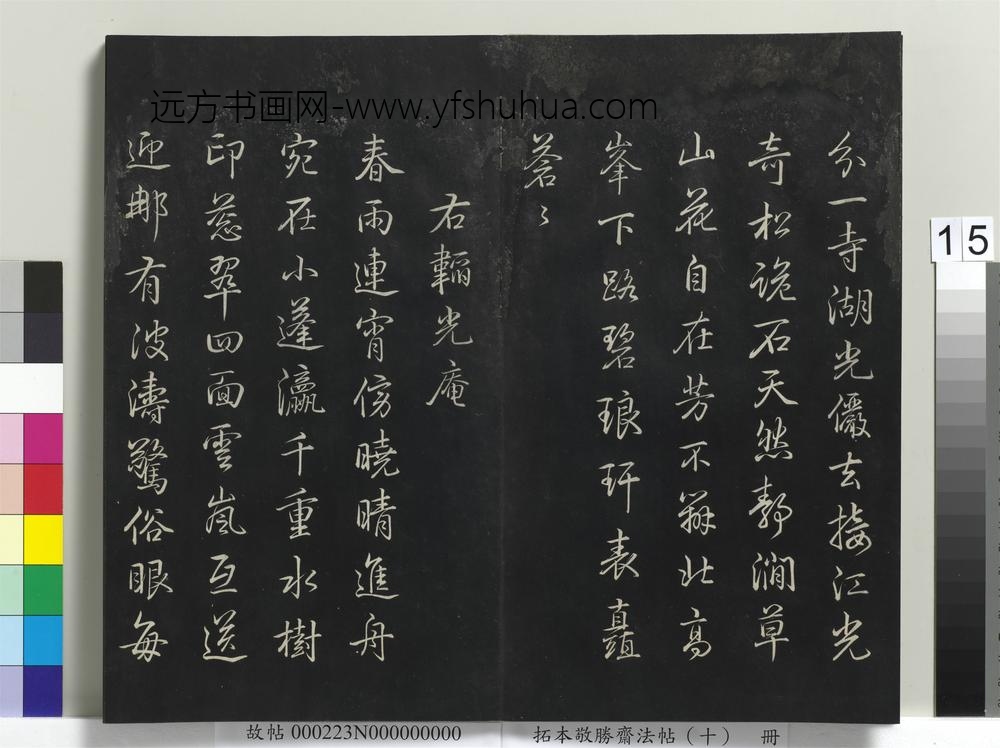 远方书画网-www.yfshuhua.com
分一寺湖光儼去接江光
奇松詭石天然靜澗草
山花自在芳不辭北高
峯下路碧琅玕表矗
蒼〻
右韜光庵
春雨連宵傍曉晴進舟
宛在小蓬瀛千重水樹
印慈翠四面雲嵐互送
迎那有波濤驚俗眼每
15
故帖 000223N000000000
拓本敬勝齋法帖（十） 冊